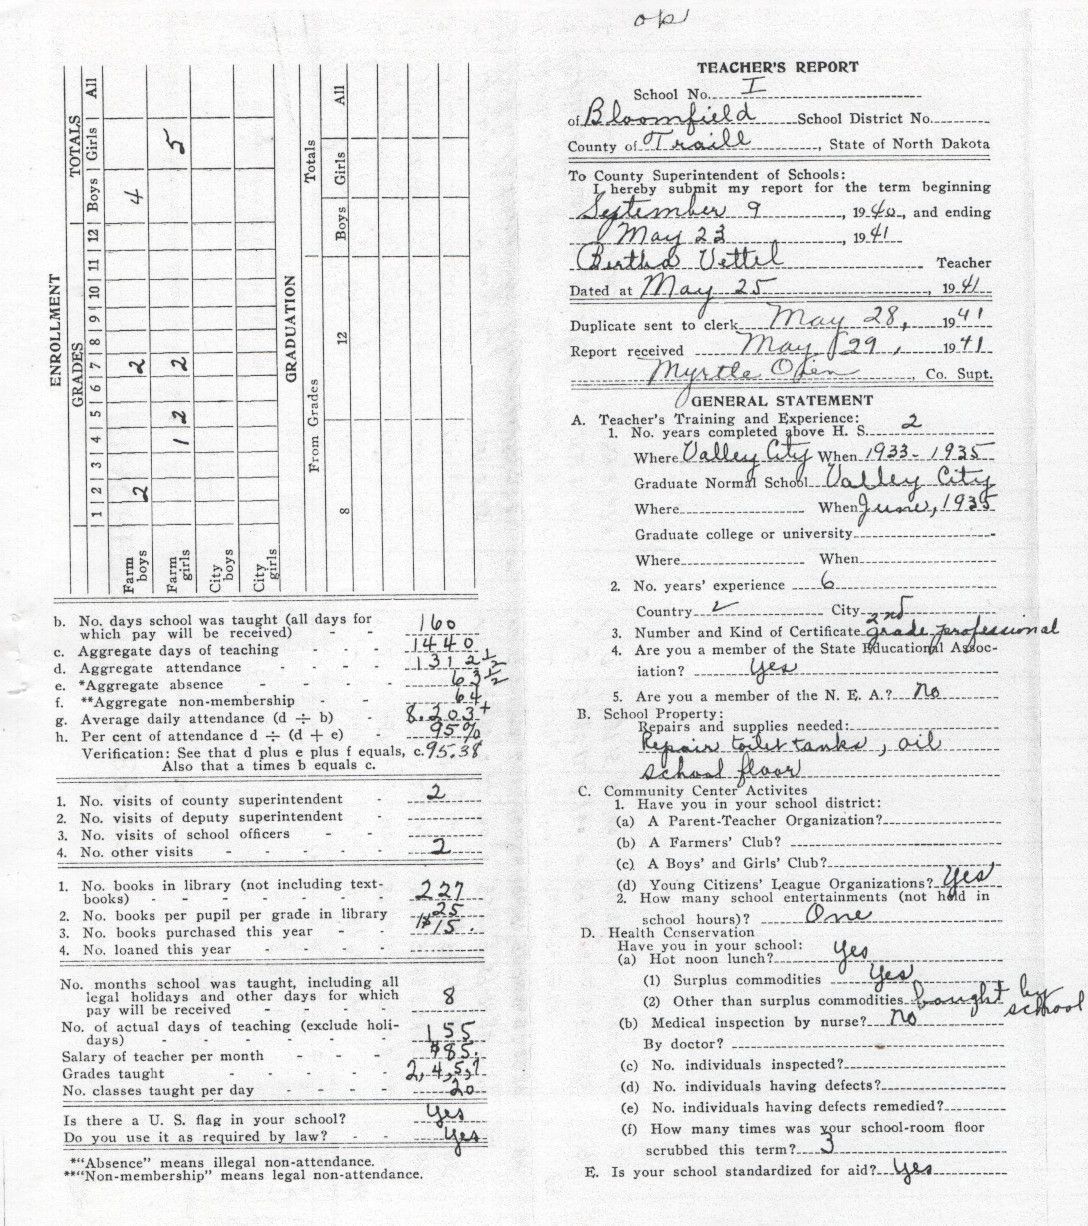 op
ENROLLMENT
GRADES TOTALS
1 2 3 4 5 6 7 8 9 10 11 12 Boys Girls All
Farm boys 2 2 4
Farm girls 1 2 2 5
City boys
City girls
GRADUATION
From Grades Totals
8 12 Boys Girls All
b. No. days school was taught (all days for
which pay will be received) - - 160
c. Aggregate days of teaching - - - 1440
d. Aggregate attendance - - - - 1312 1/2
e. *Aggregate absence - - - - 63 1/2
f. **Aggregate non-membership - - 64
g. Average daily attendance (d ÷ b) - 8.203+
h. Per cent of attendance d ÷ (d + e) - 95%
Verification: See that d plus e plus f equals, c. 95.38
Also that a times b equals c.
1. No. visits of county superintendent - 2
2. No. visits of deputy superintendent -
3. No. visits of school officers - -
4. No. other visits - - - - - 2
1. No. books in library (not including text-
books) - - - - - - - 227
2. No. books per pupil per grade in library 25
3. No. books purchased this year - - $15.
4. No. loaned this year - - - -
No. months school was taught, including all
legal holidays and other days for which
pay will be received - - - - 8
No. of actual days of teaching (exclude holi-
days) - - - - - - - 155
Salary of teacher per month - - - $85.
Grades taught - - - - - 2, 4, 5, 7
No. classes taught per day - - - - 20
Is there a U. S. flag in your school? Yes
Do you use it as required by law? - - Yes
*"Absence" means illegal non-attendance.
**"Non-membership" means legal non-attendance.
TEACHER'S REPORT
School No. I
of Bloomfield School District No.
County of Traill, State of North Dakota
To County Superintendent of Schools:
I hereby submit my report for the term beginning
September 9, 1940, and ending
May 23, 1941
Bertha Vettel Teacher
Dated at May 25, 1941
Duplicate sent to clerk May 28, 1941
Report received May 29, 1941
Myrtle, Co. Supt.
GENERAL STATEMENT
A. Teacher's Training and Experience:
1. No. years completed above H. S. 2
Where Valley City When 1933-1935
Graduate Normal School Valley City
Where When June, 1935
Graduate college or university
Where When
2. No. years' experience 6
Country ✓ City
3. Number and Kind of Certificate 2nd grade professional
4. Are you a member of the State Educational Assoc-
iation? Yes
5. Are you a member of the N. E. A.? No
B. School Property:
Repairs and supplies needed:
Repair toilet tanks, oil
school floor
C. Community Center Activites
1. Have you in your school district:
(a) A Parent-Teacher Organization?
(b) A Farmers' Club?
(c) A Boys' and Girls' Club?
(d) Young Citizens' League Organizations? Yes
2. How many school entertainments (not held in
school hours)? One
D. Health Conservation
Have you in your school:
(a) Hot noon lunch? Yes
(1) Surplus commodities Yes
(2) Other than surplus commodities bought by school
(b) Medical inspection by nurse? No
By doctor?
(c) No. individuals inspected?
(d) No. individuals having defects?
(e) No. individuals having defects remedied?
(f) How many times was your school-room floor
scrubbed this term? 3
E. Is your school standardized for aid? Yes